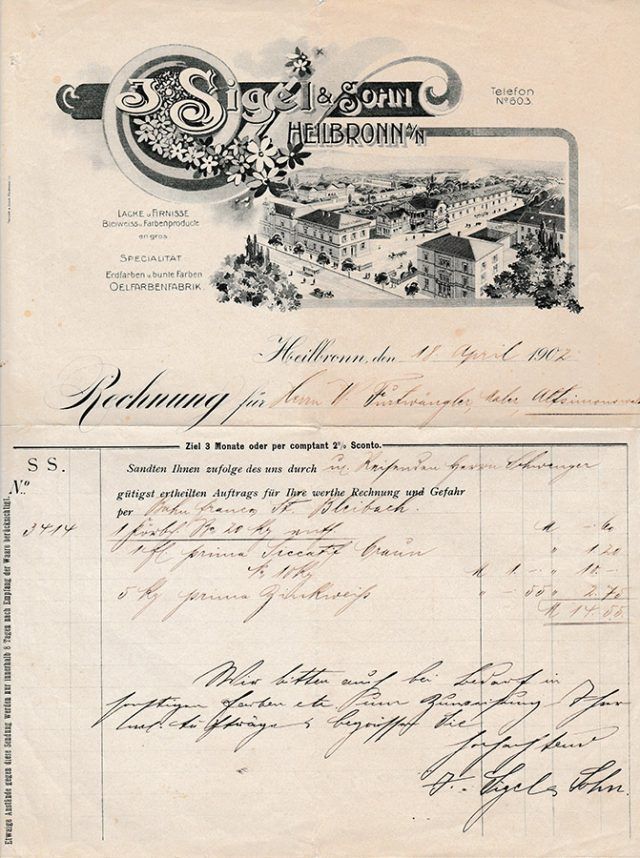 J. Sigel & Sohn
HEILBRONN A/N
Telefon
No 603.
LACKE u. FIRNISSE
Bleiweiss u. Farbenproducte
en gros
SPECIALITÄT
Erdfarben u. bunte Farben
OELFARBENFABRIK.
Heilbronn, den 18. April 1902.
Rechnung für Herrn W. Furtwängler, Maler, Altsimonswald
Ziel 3 Monate oder per comptant 2% Sconto.
SS.
No.
Sandten Ihnen zufolge des uns durch Reisenden Herrn Schwenger
gütigst ertheilten Auftrags für Ihre werthe Rechnung und Gefahr
per Bahn franco St. Bleibach.
3414 1 20 Kg M -. 60
1 fl prima Siccatif braun " 1.20
10 Kg M 1. - " 10. -
5 Kg prima Zinkweiß " - 55 " 2.75
M 14.55
Wir bitten auch bei Bedarf in
sonstigen Farben etc um Zuweisung Ihrer
Aufträge & begrüssen Sie
hochachtend
J. Sigel & Sohn.
Etwaige Anstände gegen diese Sendung werden nur innerhalb 8 Tagen nach Empfang der Waare berücksichtigt.